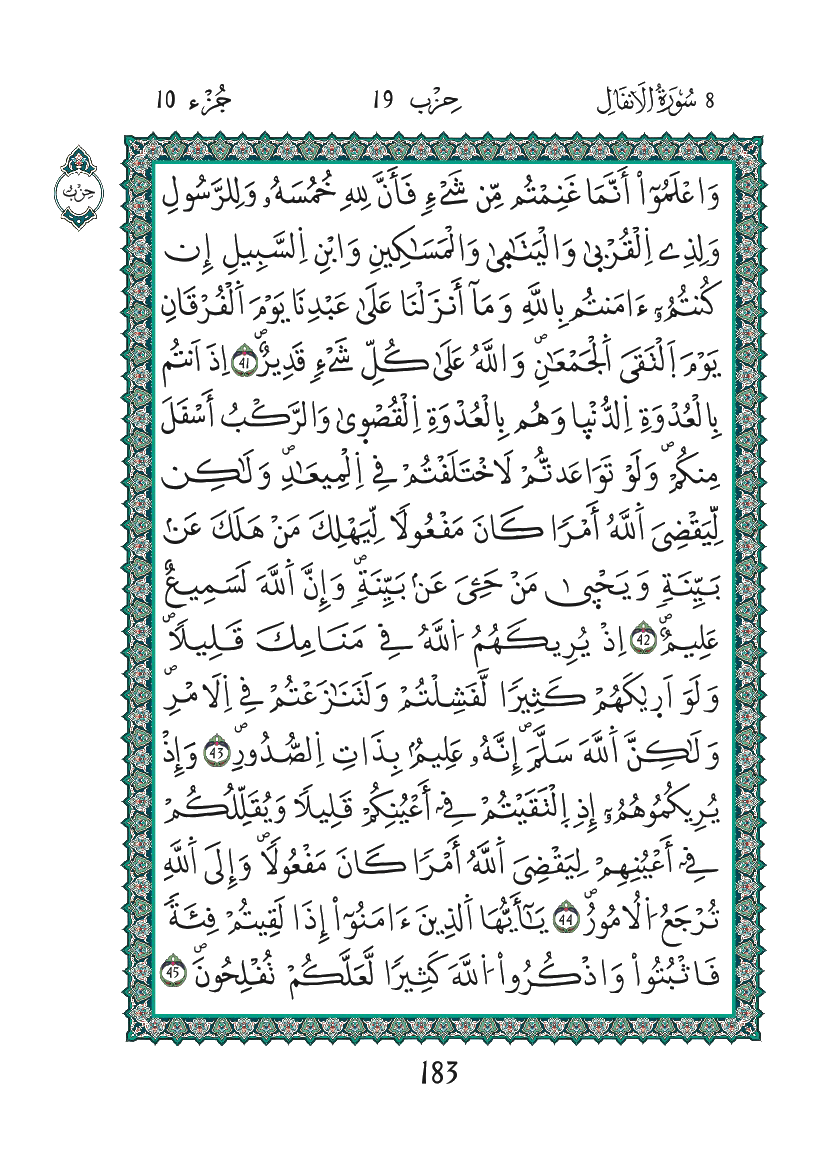 8 سُورَةُ الَانفَالِ حِزْب 19 جُزْء 10
حِزْب
وَاعْلَمُوٓاْ أَنَّمَا غَنِمْتُم مِّن شَےْءٖ فَأَنَّ لِلهِ خُمُسَهُۥ وَلِلرَّسُولِ
وَلِذِے اِ۬لْقُرْب۪يٰ وَالْيَتَٰم۪يٰ وَالْمَسَٰكِينِ وَابْنِ اِ۬لسَّبِيلِ إِن
كُنتُمُۥٓ ءَامَنتُم بِاللَّهِ وَمَآ أَنزَلْنَا عَلَىٰ عَبْدِنَا يَوْمَ اَ۬لْفُرْقَانِ
يَوْمَ اَ۪لْتَقَى اَ۬لْجَمْعَٰنِۖ وَاللَّهُ عَلَىٰ كُلِّ شَےْءٖ قَدِيرٌۖ 41 اِذَ اَنتُم
بِالْعُدْوَةِ اِ۬لدُّنْي۪ا وَهُم بِالْعُدْوَةِ اِ۬لْقُصْو۪يٰ وَالرَّكْبُ أَسْفَلَ
مِنكُمْۖ وَلَوْ تَوَاعَدتُّمْ لَاخْتَلَفْتُمْ فِے اِ۬لْمِيعَٰدِۖ وَلَٰكِن
لِّيَقْضِيَ اَ۬للَّهُ أَمْرًا كَانَ مَفْعُولًا لِّيَهْلِكَ مَنْ هَلَكَ عَنۢ
بَيِّنَةٖ وَيَحْي۪يٰ مَنْ حَيِيَ عَنۢ بَيِّنَةٖۖ وَإِنَّ اَ۬للَّهَ لَسَمِيعٌ
عَلِيمٌۖ 42 اِذْ يُرِيكَهُمُ اُ۬للَّهُ فِے مَنَامِكَ قَلِيلًاۖ
وَلَوَ اَر۪يٰكَهُمْ كَثِيرًا لَّفَشِلْتُمْ وَلَتَنَٰزَعْتُمْ فِے اِ۬لَامْرِۖ
وَلَٰكِنَّ اَ۬للَّهَ سَلَّمَۖ إِنَّهُۥ عَلِيمُۢ بِذَاتِ اِ۬لصُّدُورِۖ 43 وَإِذْ
يُرِيكُمُوهُمُۥٓ إِذِ اِ۪لْتَقَيْتُمْ فِےٓ أَعْيُنِكُمْ قَلِيلًا وَيُقَلِّلُكُمْ
فِےٓ أَعْيُنِهِمْ لِيَقْضِيَ اَ۬للَّهُ أَمْرًا كَانَ مَفْعُولًاۖ وَإِلَى اَ۬للَّهِ
تُرْجَعُ اُ۬لُامُورُۖ 44 يَٰٓأَيُّهَا اَ۬لذِينَ ءَامَنُوٓاْ إِذَا لَقِيتُمْ فِئَةً
فَاثْبُتُواْ وَاذْكُرُواْ اُ۬للَّهَ كَثِيرًا لَّعَلَّكُمْ تُفْلِحُونَۖ 45
183